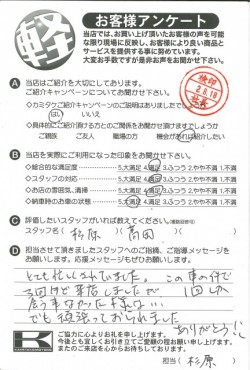 軽
お客様アンケート
当店では、お買い上げ頂いたお客様の声を可能な限り現場に反映し、お客様により良い商品とサービスを提供する事に努めています。
大変お手数ですが是非お声をお聞かせ下さい。
A 当店はご紹介を大切にしております。
ご紹介キャンペーンについてお聞かせ下さい。
◇カミタケご紹介キャンペーンのご説明はありましたでしょうか
はい いいえ
◇具体的にご紹介頂ける方とのご関係をお聞かせ頂けますでしょうか
ご親族 ご友人 職場の方 機会があれば紹介したい
検印
2.8.18
B 当店を実際にご利用になった印象をお聞かせ下さい。
◇総合的な満足度 5.大満足 4.満足 3.ふつう 2.やや不満 1.不満
◇スタッフの対応 5.大満足 4.満足 3.ふつう 2.やや不満 1.不満
◇お店の雰囲気、清掃 5.大満足 4.満足 3.ふつう 2.やや不満 1.不満
◇納車時のお車の状態 5.大満足 4.満足 3.ふつう 2.やや不満 1.不満
C 評価したいスタッフがいれば教えてください。(複数回答可)
スタッフ名( 杉原 )( 高田 )
D 担当させて頂きましたスタッフへのご指摘、ご指導メッセージをお願いします。応援メッセージもぜひお願いします。
とても忙しくされていました。この車の件で
3回ほど来店しましたが 1回しか
でも頑張っておられました
ありがとう!!
ご協力に心よりお礼を申し上げます。
今後とも宜しくお引き立てご愛顧の程お願い申し上げます。
またのご来店を心からお待ちしております。
担当( 杉原 )